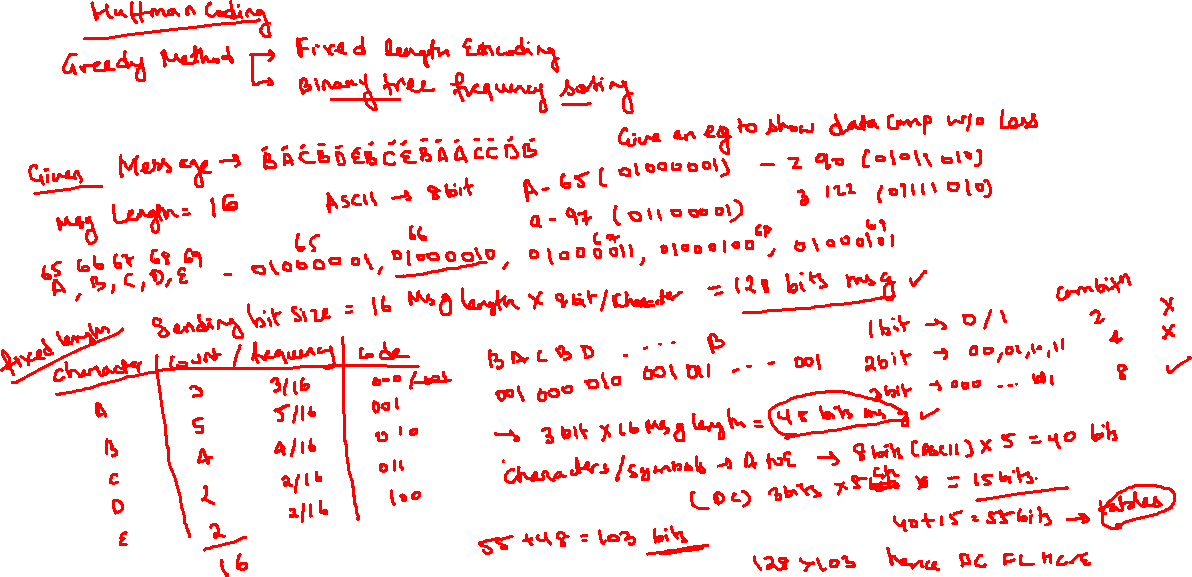 Huffman Coding
Greedy Method → Fixed Length Encoding
→ Binary tree frequency sorting
Give an eg to show data comp w/o Loss
Given Message → BACBDEBCEBAACCDB
Msg Length = 16 ASCII → 8bit A-65 (01000001) - Z 90 (01011010)
a-97 (01100001) 122 (01111010)
65 66 67 68 69 65 66 67 68 69
A, B, C, D, E - 01000001, 01000010, 01000011, 01000100, 01000101
Sending bit size = 16 Msg length × 8bit/character = 128 bits msg ✓
fixed length
character count / frequency code
A 3 3/16 000/001
B 5 5/16 001
C 4 4/16 010
D 2 2/16 011
E 2 2/16 100
16
combixn
BACBD .... B 1bit → 0/1 2 ×
001 000 010 001 011 ... 001 2bit → 00,01,10,11 4 ×
3bit → 000 ... 8 ✓
→ 3bit × 16 Msg length = 48 bits msg ✓
characters/symbols → A to E → 8bits (ASCII) × 5 = 40 bits
(DC) 3bits × 5 = 15 bits.
40+15 = 55bits → tables
55+48 = 103 bits
128>103 hence DC FLHCE